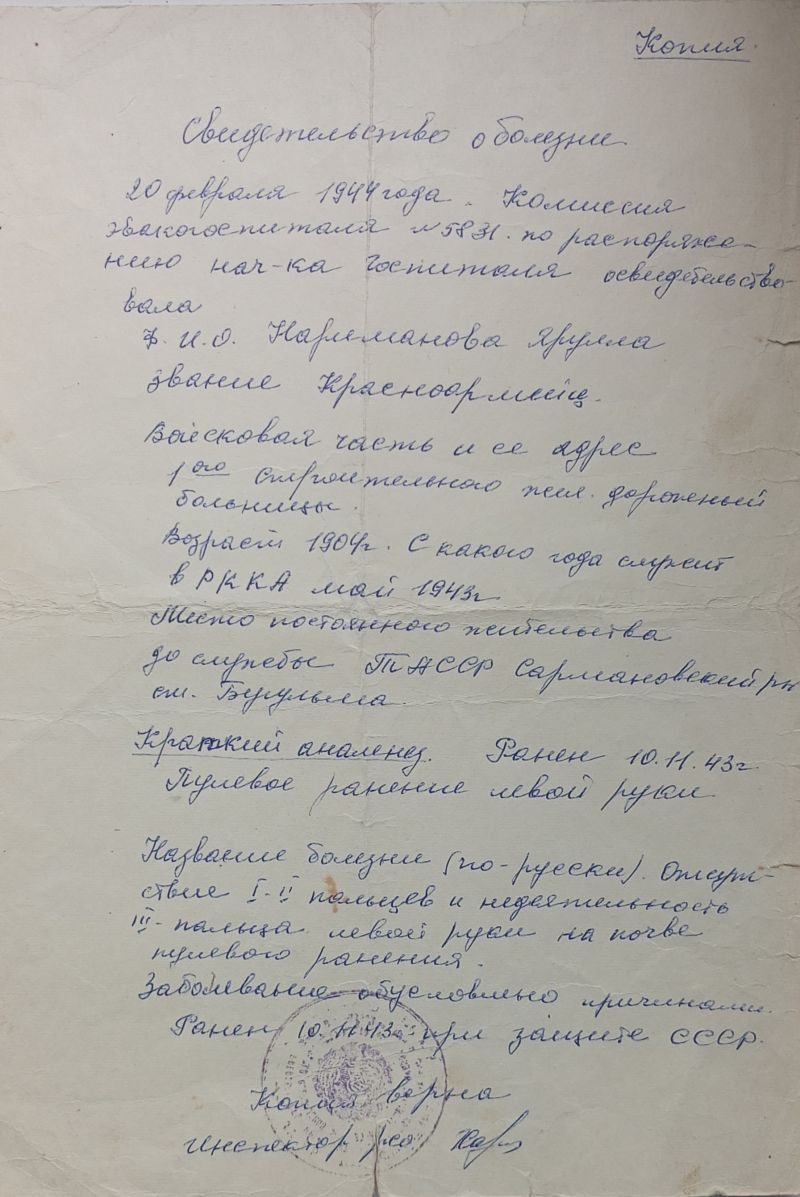 Копия.
Свидетельство о болезни
20 февраля 1944 года. Комиссия
эвакогоспиталя №5831. по распоряже-
нию нач-ка госпиталя освидетельство-
вала
Ф. И. О. Нариманова Ярулла
звание Красноармеец.
Войсковая часть и ее адрес
1ого строительного жел. дорожный
больницы.
Возраст 1904г. С какого года служит
в РККА май 1943г
Место постоянного жительства
до службы ТАССР Сармановский рн
ст. Бугульма.
Краткий анамнез. Ранен 10.11.43г.
Пулевое ранение левой руки
Название болезни (по-русски). Отсут-
ствие I-II пальцев и недеятельность
III-пальца левой руки на почве
пулевого ранения.
Заболевание обусловлено причинами.
Ранен 10.11.43г при защите СССР.
Копия верна
Инспектор рсо